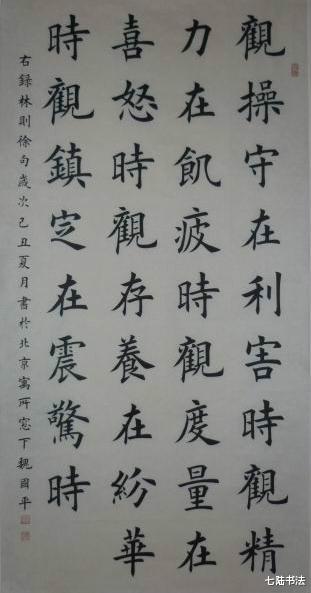 觀操守在利害時觀精
力在飢疲時觀度量在
喜怒時觀存養在紛華
時觀鎮定在震驚時
右録林則徐句歲次己丑夏月書於北京寓所窓下魏國平
七陆书法